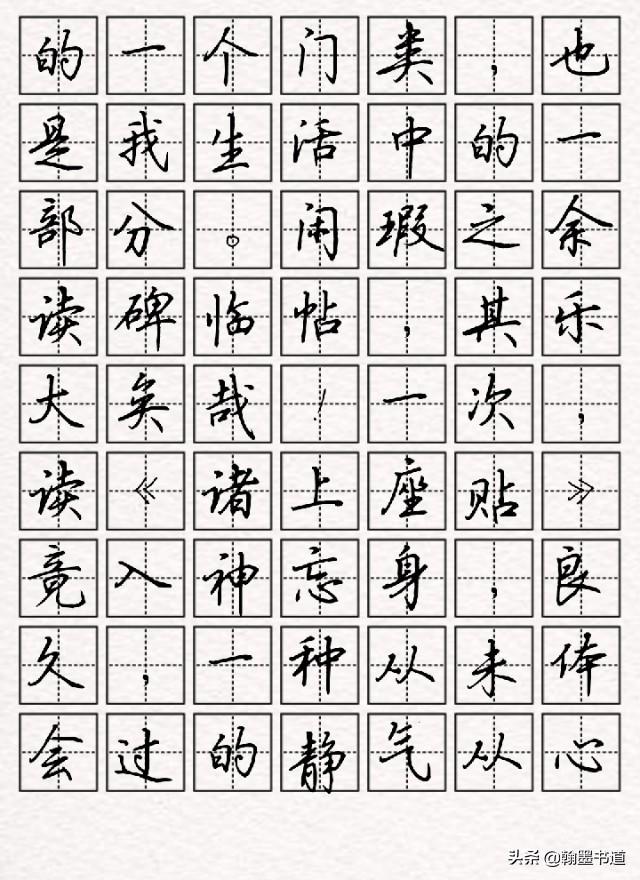 的一个门类，也
是我生活中的一
部分。闲瑕之余
读碑临帖，其乐
大矣哉！一次，
读《诸上座贴》
竟入神忘身，良
久，一种从未体
会过的静气从心
头条 @翰墨书道